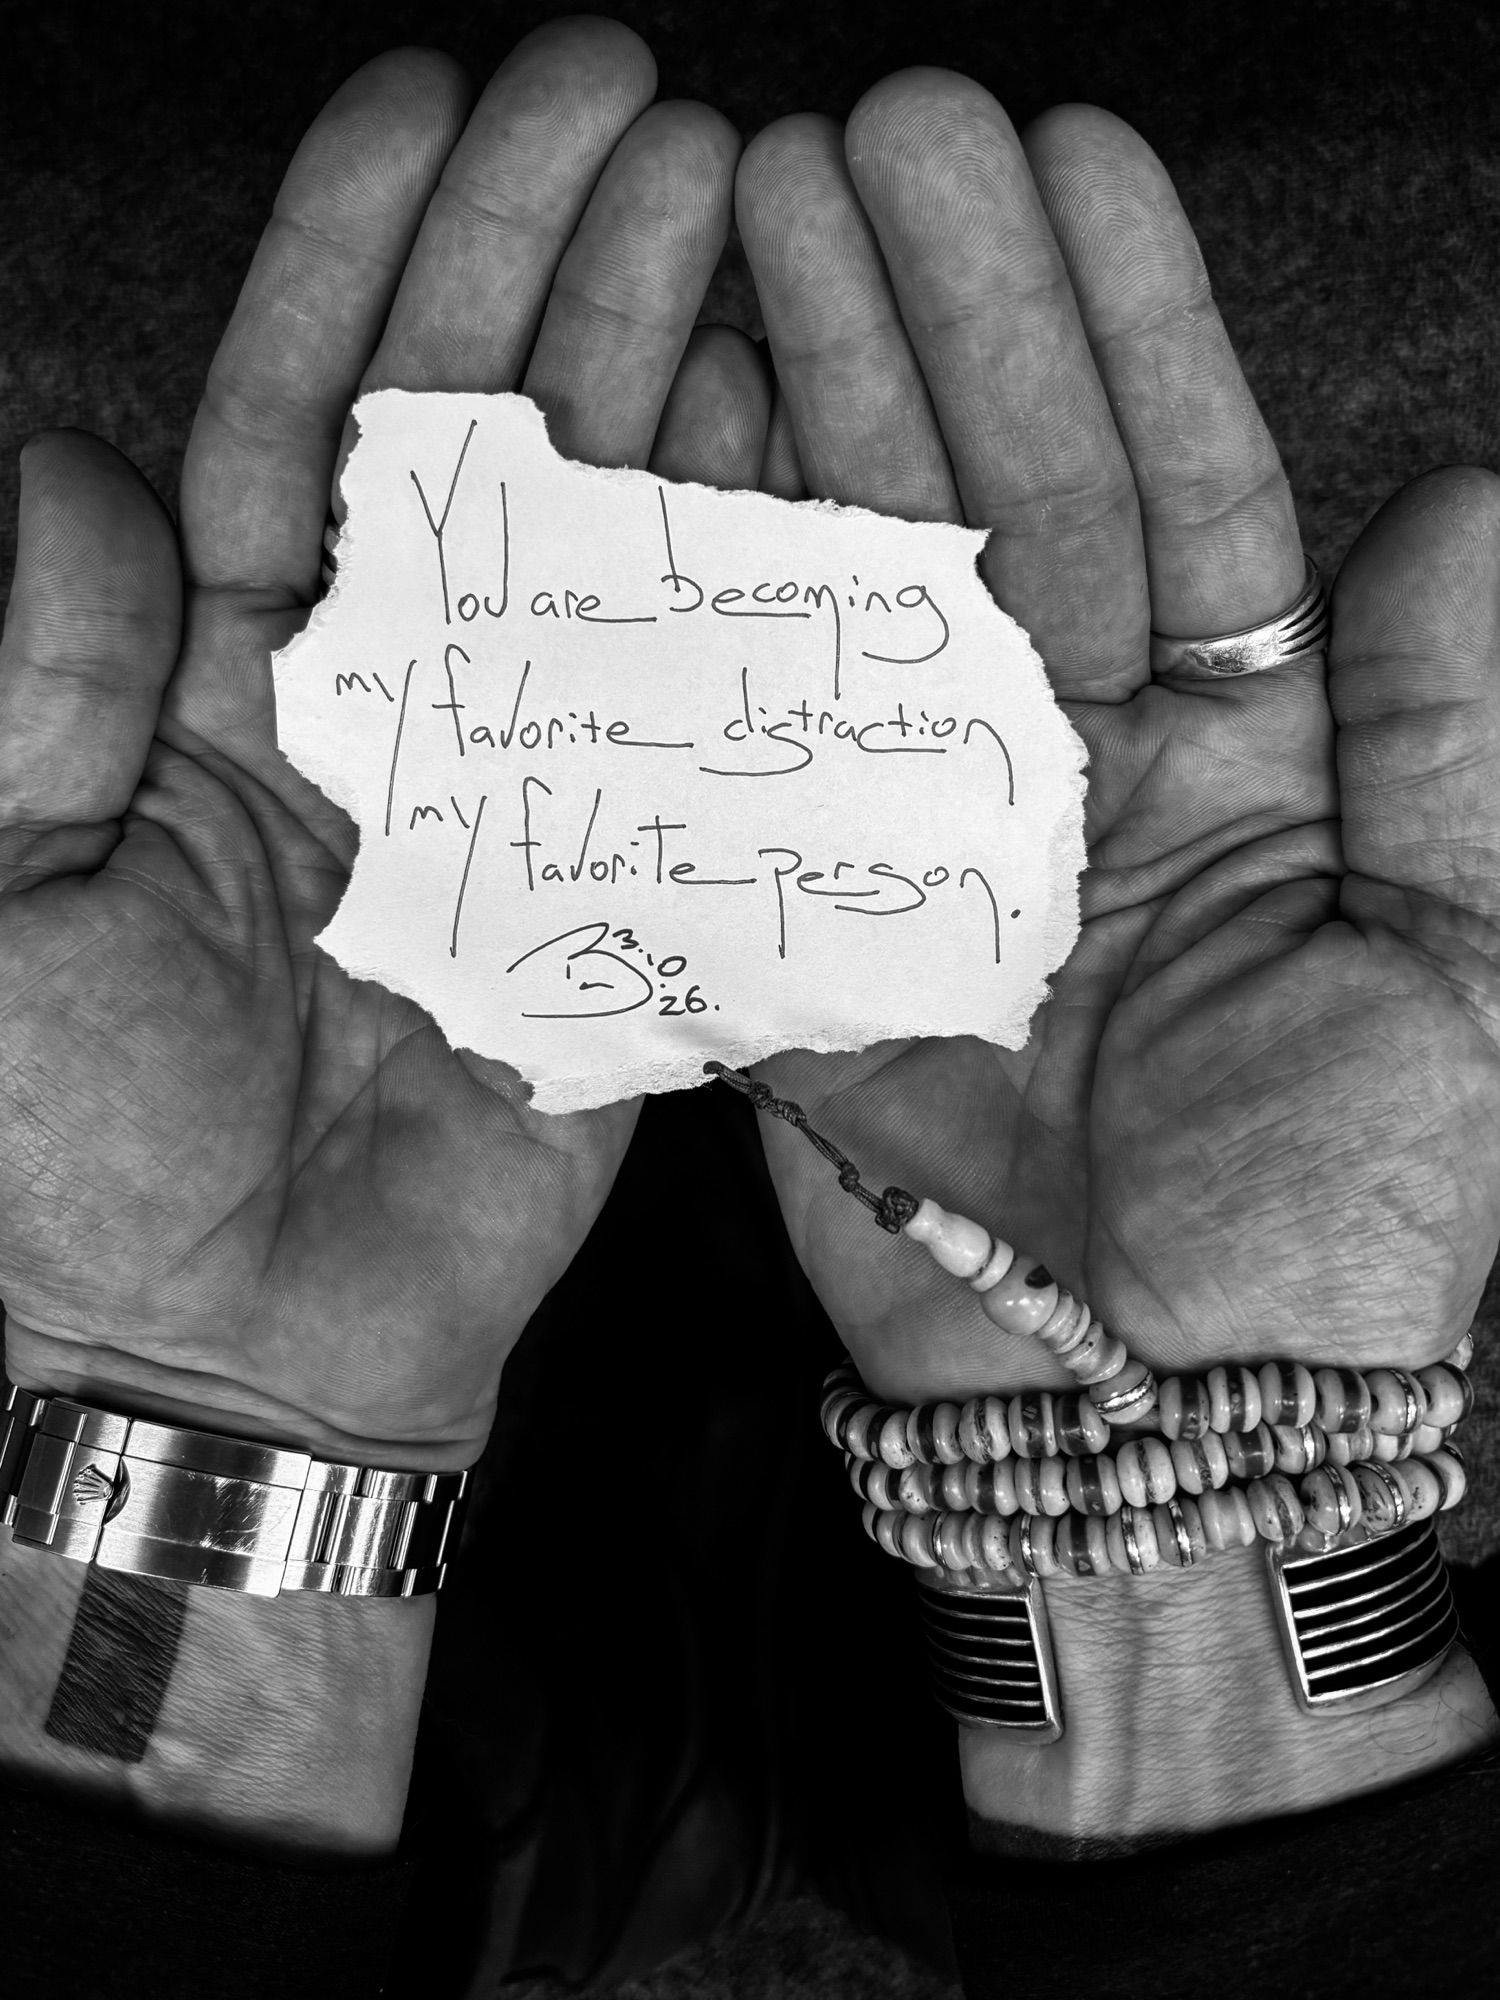 You are becoming
my favorite distraction
my favorite person.
B 3.10
.26.